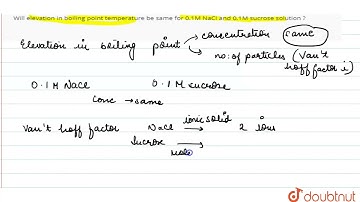 Will elevation in boiling point temperature be same for 0.1M NaCl and 0.1M sucrose solution ?
Elevation in boiling point → concentration same
→ no: of particles (Van't hoff factor i)
0.1 M NaCl 0.1 M sucrose
Conc → same
Van't hoff factor NaCl ionic solid → 2 ions
Sucrose →
mole
doubtnut